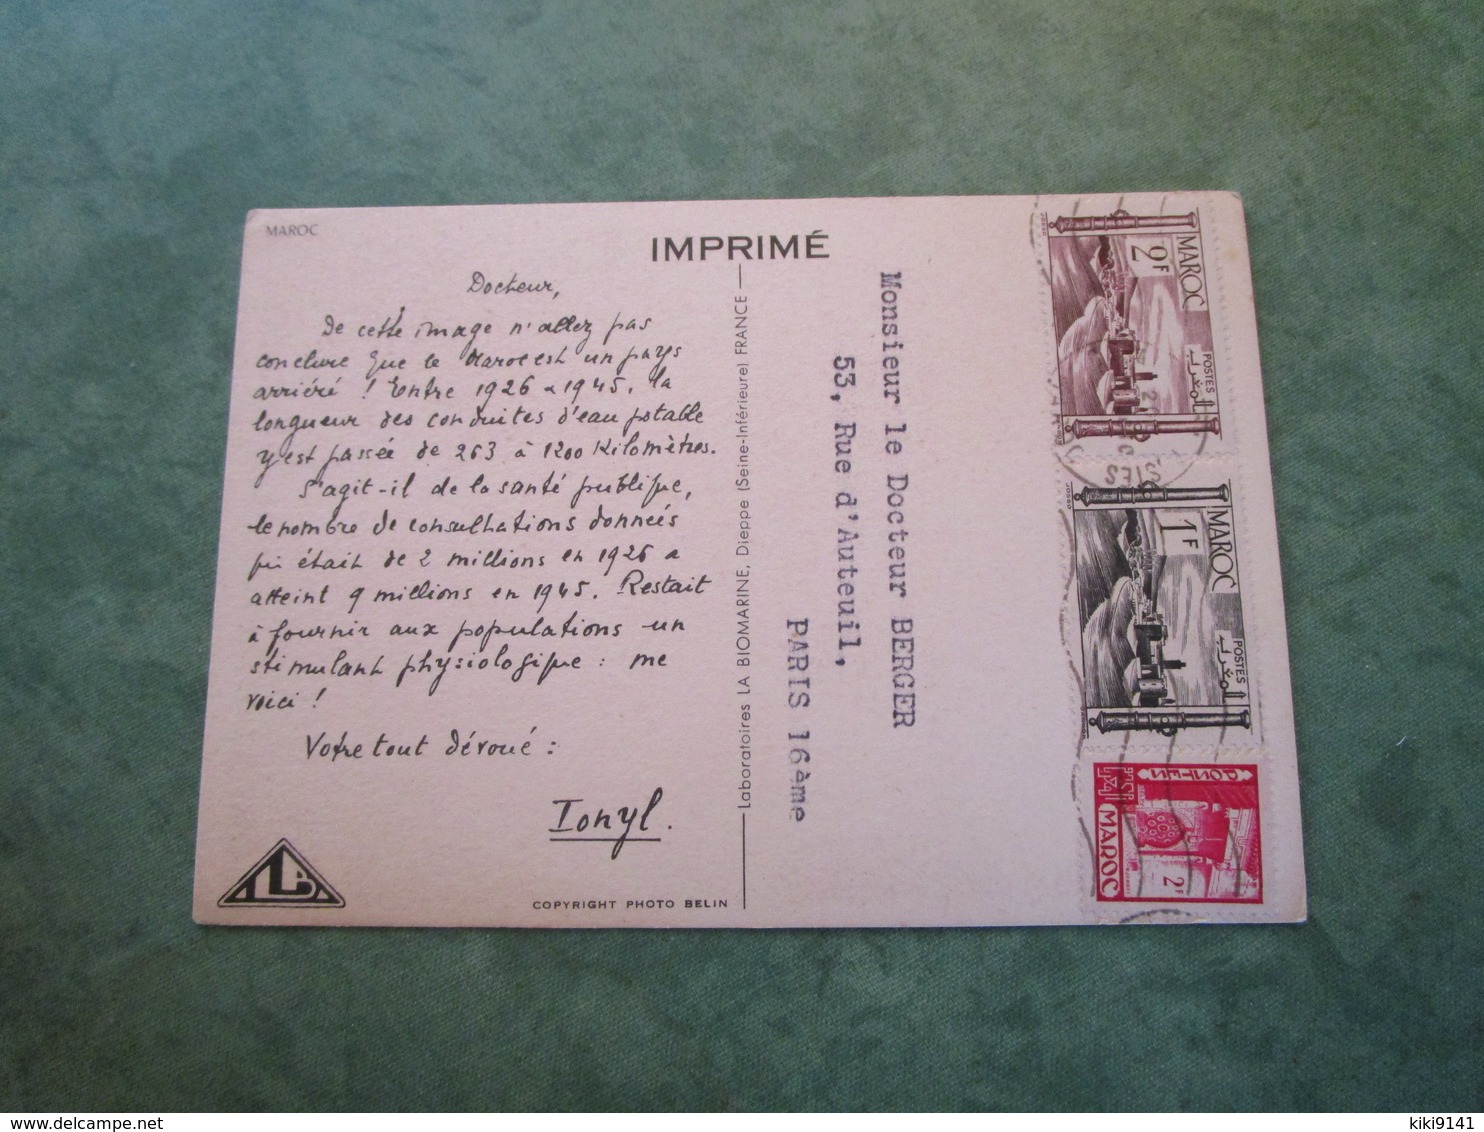 MAROC
IMPRIMÉ
Docteur,
De cette image n'allez pas
conclure que le Maroc est un pays
arriéré ! Entre 1926 & 1945, la
longueur des conduites d'eau potable
y est passée de 263 à 1200 Kilomètres.
S'agit-il de la santé publique,
le nombre de consultations données
qui était de 2 millions en 1926 a
atteint 9 millions en 1945. Restait
à fournir aux populations un
stimulant physiologique : me
voici !
Votre tout dévoué :
Ionyl.
COPYRIGHT PHOTO BELIN
Laboratoires LA BIOMARINE, Dieppe (Seine-Inférieure) FRANCE
Monsieur le Docteur BERGER
53, Rue d'Auteuil,
PARIS 16ème
MAROC
2F
POSTES
المغرب
JOSSO
MAROC
1F
POSTES
المغرب
JOSSO
MAROC
2F
delcampe.net
kiki9141